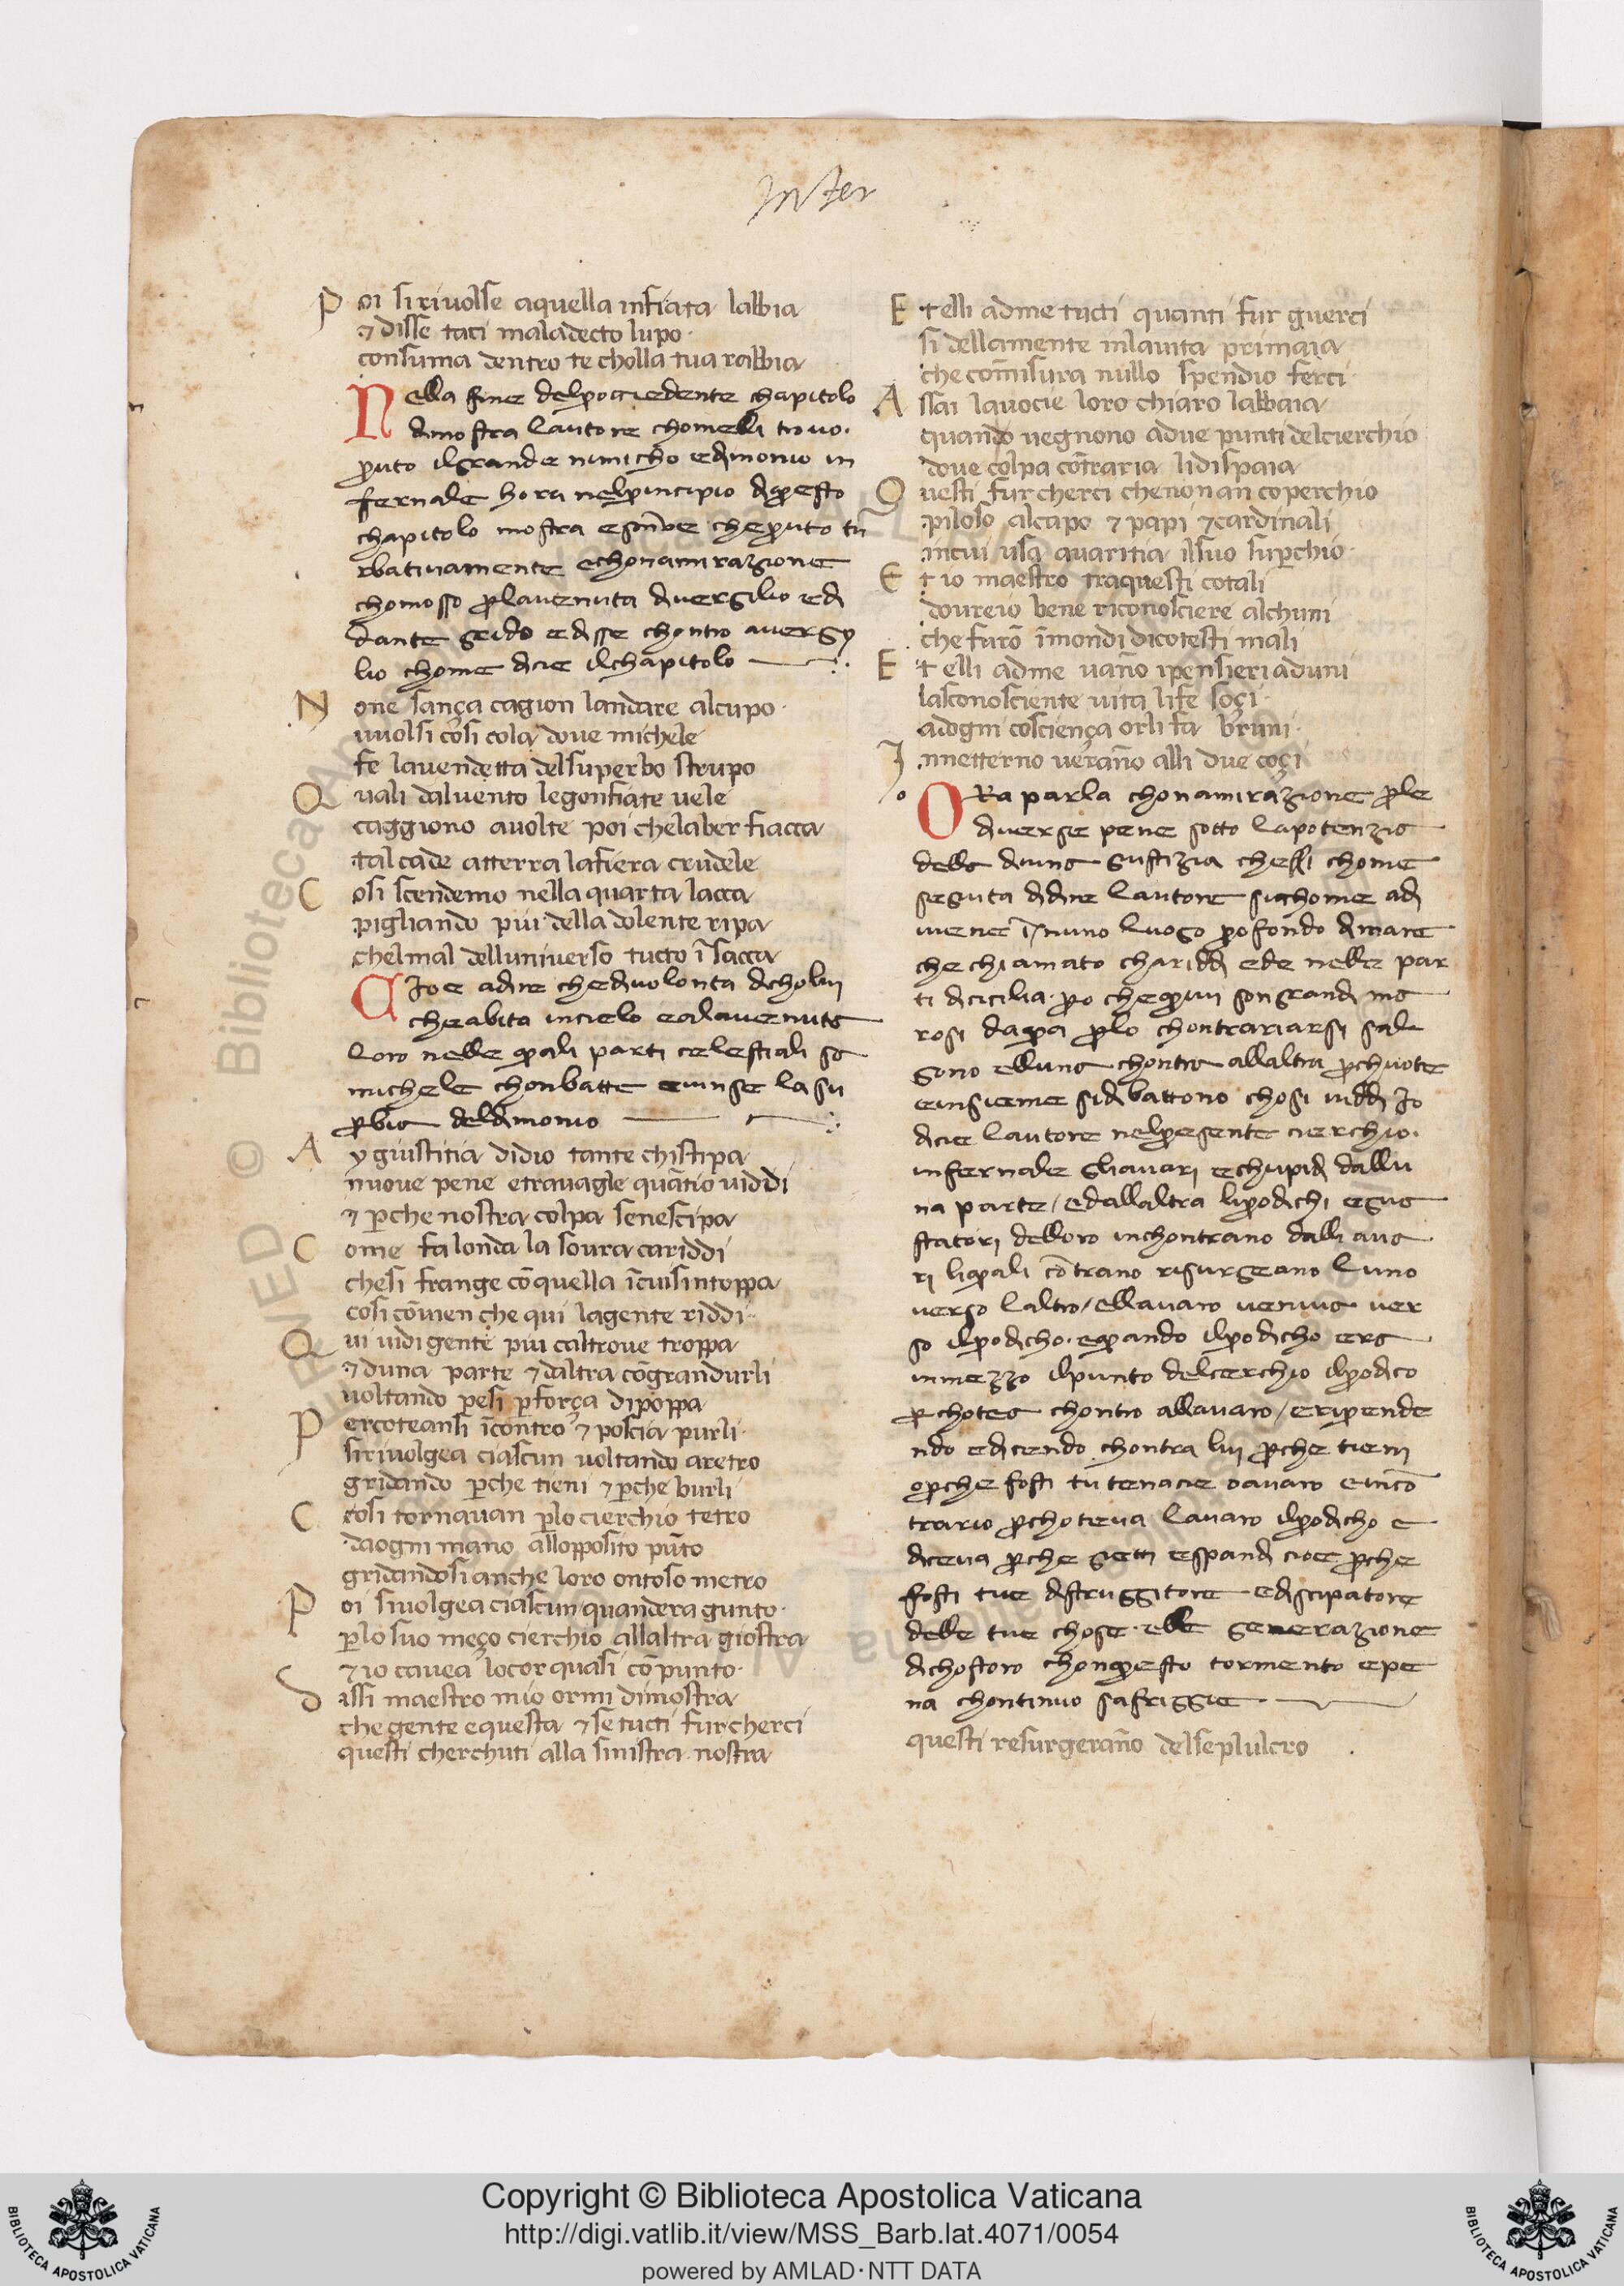 Infer
Poi si rivolse aquella infiata labbia
⁊ disse taci maladecto lupo·
consuma dentro te cholla tua rabbia
Nella fine delprociedente chapitolo
dimostra lautore chomelli trovo·
pruto ilgrande nimicho edimonio in
fernale hora nelprincipio diquesto
chapitolo mostra escrive chepruto tu
rbativamente echonamirazione
chomosso perlavenuta diversilio edi
dante grido edisse chontro aversy
lio chome dicie ilchapitolo
None sança cagion landare alcupo·
vuolsi cosi cola dove michele
fe lavendetta delsuperbo strupo
Quali dalvento legonfiate vele
caggiono avolte poi chelalber fiacca
tal cade atterra lafiera crudele
Cosi scendemo nella quarta lacca
pigliando piu della dolente ripa
chelmal delluniverso tucto ī sacca
Cioe adire chedivolonta dicholui
cheabita incielo
loro nelle quali parti celestiali sa
michele chonbatte evinse lasu
perbia deldimonio
Ay giustitia didio tante chistipa
nuove pene etravagle quātio viddi
⁊ p̄che nostra colpa senescipa
Come fa londa la sovra cariddi
chesi frange cō quella ī cuisintoppa
cosi cōvien che qui lagente riddi·
Qui vidi gente piu caltrove troppa
⁊ duna parte ⁊ daltra cōgrandurli
voltando pesi p̄ força dipoppa
Percoteansi īcontro ⁊ poscia purli·
sirivolgea ciascun voltando aretro
gridando p̄che tieni ⁊ p̄che burli
Ccosi tornavan p̄lo cierchio tetro
daogni mano allopposito pūto
gridandosi anche loro ontoso metro
Poi sivolgea ciascun quandera giunto·
p̄lo suo meço cierchio allaltra giostra
⁊ io cavea locor quasi cōpunto·
Dissi maestro mio ormi dimostra
che gente equesta ⁊ se tucti fur cherci
questi cherchuti alla sinistra nostra
Et elli adme tucti quanti fur guerci
si dellamente inlavita primaia
che cōmisura nullo spendio ferci·
Assai lavocie loro chiaro labbaia
quando vegnono adue punti delcierchio
dove colpa cōtraria lidispaia
Questi fur cherci chenon an coperchio
piloso alcapo ⁊ papi ⁊ cardinali
incui usa avaritia ilsuo sup̄chio·
Et io maestro traquesti cotali
dovreio bene riconosciere alchuni
che furō īmondi dicotesti mali
Et elli adme vano ipensieri aduni
lasconosciente vita life soçi·
adogni cosciença orli fa bruni·
Innetterno verāno alli due coçi
ORa parla chonamirazione perle
diverse pene sotto lapotenzia
della divina giustizia chessi chome
seguita didire lautore sicchome adi
viene ī nuno luogo profondo dimare
che chiamato chariddi ede nelle par
ti dicicilia· pero chequivi son grandi ma
rosi daqua perlo chontrariarsi sal
gono elluna chontra allaltra perchuote
einsieme sidibattono chosi viddi Io
dicie lautore nelpresente cierchio·
infernale gliavari echupidi dallu
na parte/ edallaltra liprodichi egua
statori delloro inchontrano dalli ava
ri liquali cōtrano risurgeano luno
verso laltro/ ellavaro veniva ver
so ilprodicho· equando ilprodicho era
inmezzo ilpunto delcerchio ilprodico
perchotea chontro allavaro/ eriprende
ndo edicendo chontra lui perche tieni
operche fosti tu tenacie oavaro eincō
trario perchoteva lavaro ilprodicho e
diceva perche gietti espandi cioe perche
fosti tue distruggitore ediscipatore
delle tue chose· elle generazione
dichostoro chonquesto tormento epe
na chontinuo safriggie
questi resurgerāno delseplulcro
Copyright © Biblioteca Apostolica Vaticana
http://digi.vatlib.it/view/MSS_Barb.lat.4071/0054
powered by AMLAD·NTT DATA
BIBLIOTECA APOSTOLICA VATICANA
BIBLIOTECA APOSTOLICA VATICANA